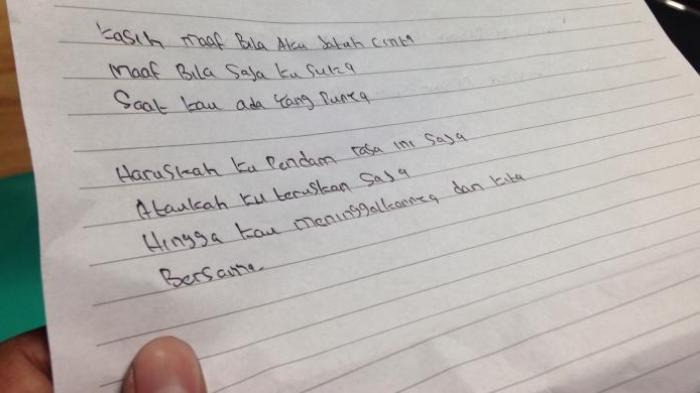 Kasih maaf Bila Aku Jatuh Cinta
Maaf Bila Saja Ku Suka
Saat kau ada yang Punya
Haruskah ku Pendam rasa ini Saja
Ataukah ku teruskan Saja
Hingga kau meninggalkannya dan kita
Bersama